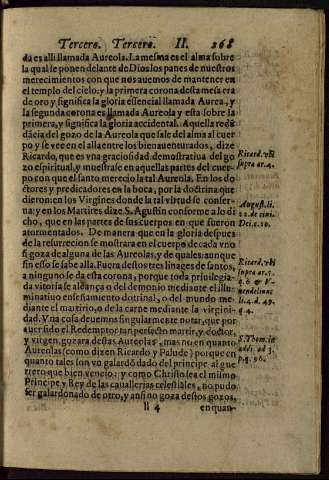 Tercero. Tercero. II. 268
da es alli llamada Aureola. La mesma es el alma sobre
la qual se ponen delante de Dios los panes de nuestros
merecimientos con que nos auemos de mantener en
el templo del cielo: y la primera corona desta mesa era
de oro y significa la gloria essencial llamada Aurea, y
la segunda corona es llamada Aureola y esta sobre la
primera, y significa la gloria accidental. Aquella redū
dácia del gozo de la Aureola que sale del alma al cuer
po y se vee en el alla entre los bienauenturados, dize
Ricardo, que es vna graciosidad demostratiua del go
zo espiritual, y muestrase en aquellas partes del cuer-
po con que el santo merecio la tal Aureola. En los do-
ctores y predicadores en la boca, por la doctrina que
dieron: en los Virgines donde la tal virtud se conser-
ua: y en los Martires dize S. Agustin conforme a lo di
cho, que en las partes de sus cuerpos en que fueron
atormentados. De manera que en la gloria despues
de la resurreccion se mostrara en el cuerpo de cada vno
si goza de alguna de las Aureolas, y de quales: aunque
sin esso se sabe alla. Fuera destos tres linages de santos,
a ninguno se da esta corona, porque toda priuilegia-
da vitoria se alcança o del demonio mediante el illu-
minatiuo enseñamiento dotrinal, o del mundo me-
diante el martirio, o de la carne mediante la virgini-
dad. Vna cosa deuemos singularmente notar, que por
auer sido el Redemptor tan perfecto martir, y doctor,
y virgen, gozara destas Aureolas, mas no en quanto
Aureolas (como dizen Ricardo y Palude) porque en
quanto tales son vn galardō dado del principe al gue
rrero que bien vencio: y como Christo sea el mismo
Principe y Rey de las cauallerias celestiales, no pudo
ser galardonado de otro, y ansi no goza destos gozos,
ll 4 en quan-
Ricard. vbi
supra ar. 4.
August. li.
22. de ciui.
Dei. c. 20.
Ricard. vbi
supra ar. 5.
q. 6. &
li. 4. d. 49.
q. 4.
S. Thom. in
addi. ad 3.
p. q. 96.